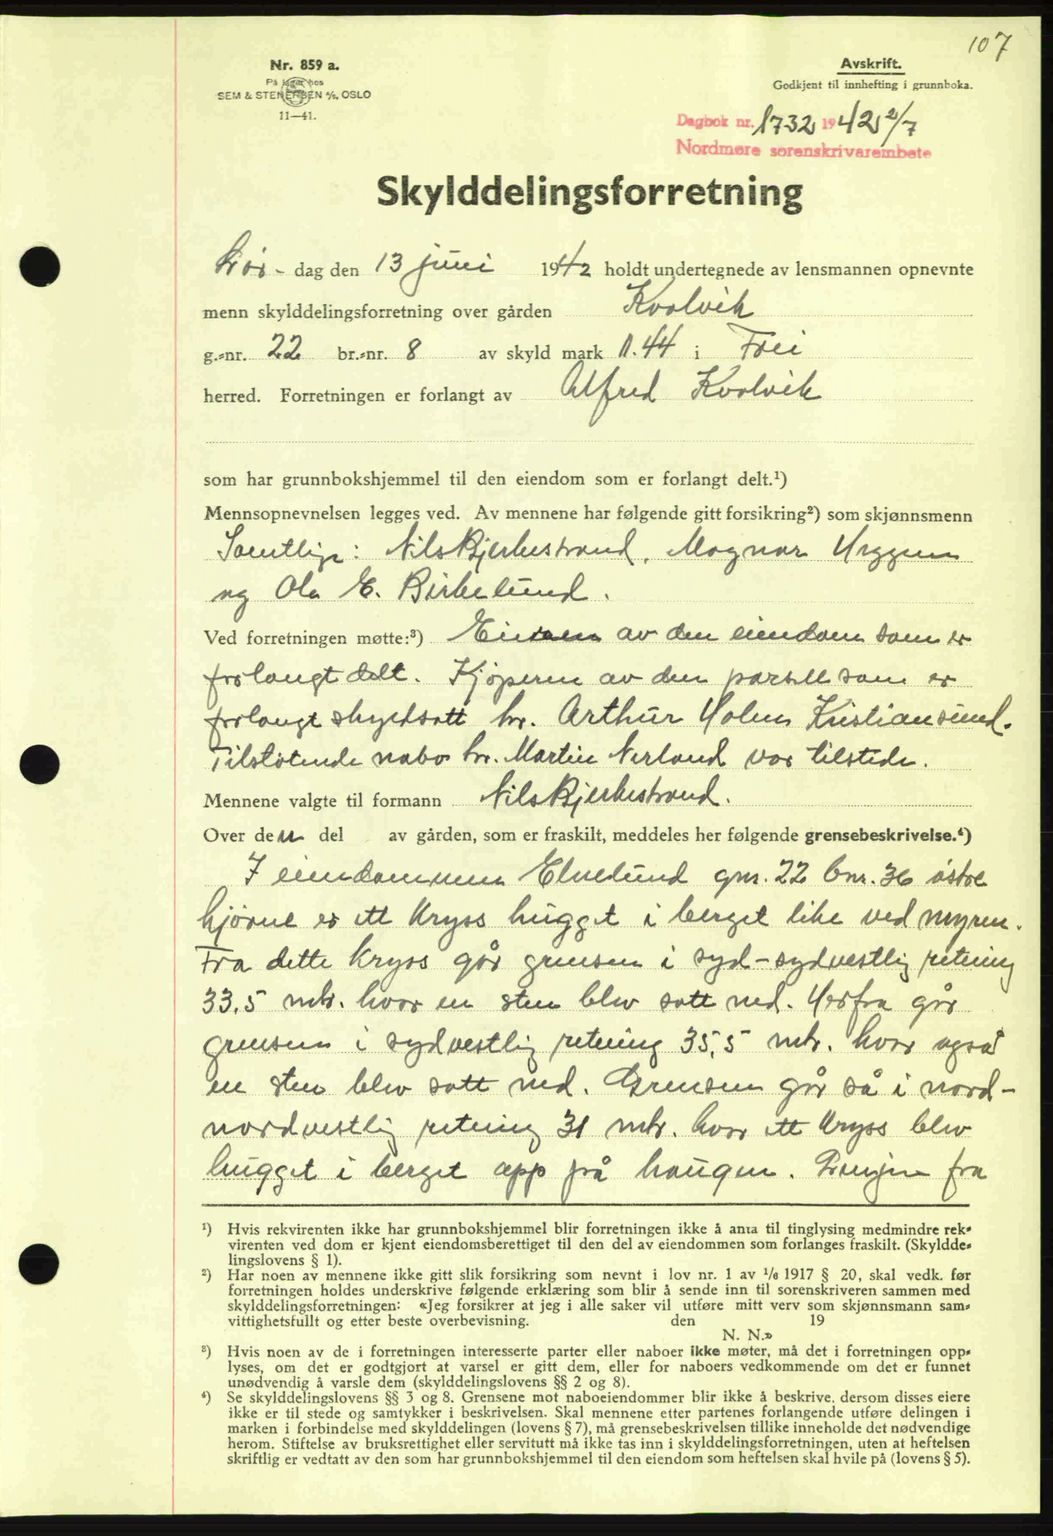 107
Nr. 859 a.
På lager hos
SEM & STENERSEN A/S, OSLO
11—41.
Avskrift.
Godkjent til innhefting i grunnboka.
Dagbok nr. 1732 1942 2/7
Nordmøre sorenskrivarembete
Skylddelingsforretning
Lør-dag den 13 juni 1942 holdt undertegnede av lensmannen opnevnte
menn skylddelingsforretning over gården Kvalvik
g.-nr. 22 br.-nr. 8 av skyld mark 11.44 i Frei
herred. Forretningen er forlangt av Alfred Kvalvik
som har grunnbokshjemmel til den eiendom som er forlangt delt.¹)
Mennsopnevnelsen legges ved. Av mennene har følgende gitt forsikring²) som skjønnsmenn
Samtlige: Nils Bjerkestrand, Magnar
og Ola E. Birkelund.
Ved forretningen møtte:³) Eieren av den eiendom som er
forlangt delt. Kjøperen av den parsell som er
forlangt skyldsatt hr. Arthur Holm Kristiansund.
Tilstøtende nabo hr. Martin Nerland var tilstede.
Mennene valgte til formann Nils Bjerkestrand.
Over den del av gården, som er fraskilt, meddeles her følgende grensebeskrivelse.⁴)
I eiendommen Elvelund gnr. 22 bnr. 36 østre
hjørne er ett kryss hugget i berget like ved myren.
Fra dette kryss går grensen i syd-sydvestlig retning
33,5 mtr. hvor en sten blev satt ned. Herfra går
grensen i sydvestlig retning 35,5 mtr. hvor også
en sten blev satt ned. Grensen går så i nord-
nordvestlig retning 31 mtr. hvor ett kryss blev
hugget i berget opp på haugen. Linjen fra
¹) Hvis rekvirenten ikke har grunnbokshjemmel blir forretningen ikke å anta til tinglysing medmindre rek-
virenten ved dom er kjent eiendomsberettiget til den del av eiendommen som forlanges fraskilt. (Skyldde-
lingslovens § 1).
²) Har noen av mennene ikke gitt slik forsikring som nevnt i lov nr. 1 av 1/6 1917 § 20, skal vedk. før
forretningen holdes underskrive følgende erklæring som blir å sende inn til sorenskriveren sammen med
skylddelingsforretningen: «Jeg forsikrer at jeg i alle saker vil utføre mitt verv som skjønnsmann sam-
vittighetsfullt og etter beste overbevisning. den 19
N. N.»
³) Hvis noen av de i forretningen interesserte parter eller naboer ikke møter, må det i forretningen opp-
lyses, om det er godtgjort at varsel er gitt dem, eller for naboers vedkommende om det er funnet
unødvendig å varsle dem (skylddelingslovens §§ 2 og 8).
⁴) Se skylddelingslovens §§ 3 og 8. Grensene mot naboeiendommer blir ikke å beskrive, dersom disses eiere
ikke er til stede og samtykker i beskrivelsen. Skal mennene etter partenes forlangende utføre delingen i
marken i forbindelse med skylddelingen (lovens § 7), må grensebeskrivelsen tillike inneholde det nødvendige
herom. Stiftelse av bruksrettighet eller servitutt må ikke tas inn i skylddelingsforretningen, uten at heftelsen
skriftlig er vedtatt av den som har grunnbokshjemmel til den eiendom som heftelsen skal hvile på (lovens § 5).